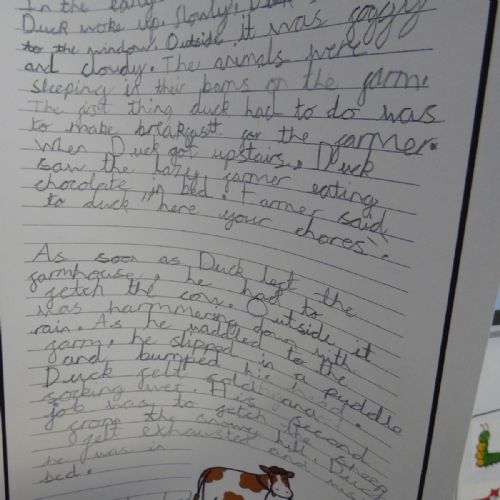 In the early
Duck woke up slowly. Duck
to the window. Outside it was foggy
and cloudy. The animals were
sleeping in their barns on the farm.
The first thing duck had to do was
to make breakfast for the farmer.
When Duck got upstairs, Duck
saw the lazy farmer eating
chocolate in bed. Farmer said
to duck "Here your chores".
As soon as Duck left the
farmhouse, he had to
fetch the cow. Outside it
was hammmering down with
rain. As he waddled to the
farm, he slipped in a puddle
and bumped his head.
Duck felt cold and
socking wet. His second
job was to fetch the sheep
from the snowy hill. Duck
felt exhausted and
he was in
bed.